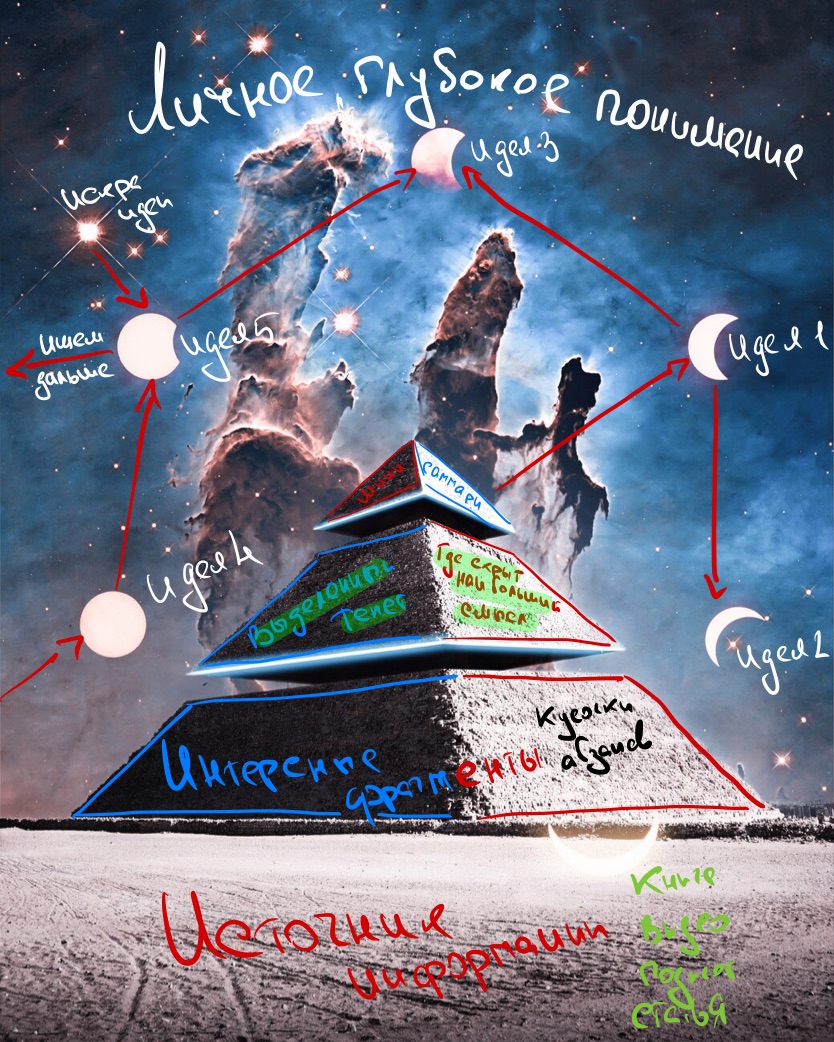 Личное, глубокое понимание
Идея 3
искра
идеи
Идея 5
ищем
дальше
Идея 1
Идея 4
Идея 2
мини
саммари
Выделенный
текст
Где скрыт
наибольший
смысл
Интересные
фрагменты
Кусочки
абзацев
Источник
информации
Книга
Видео
Подкаст
Статья